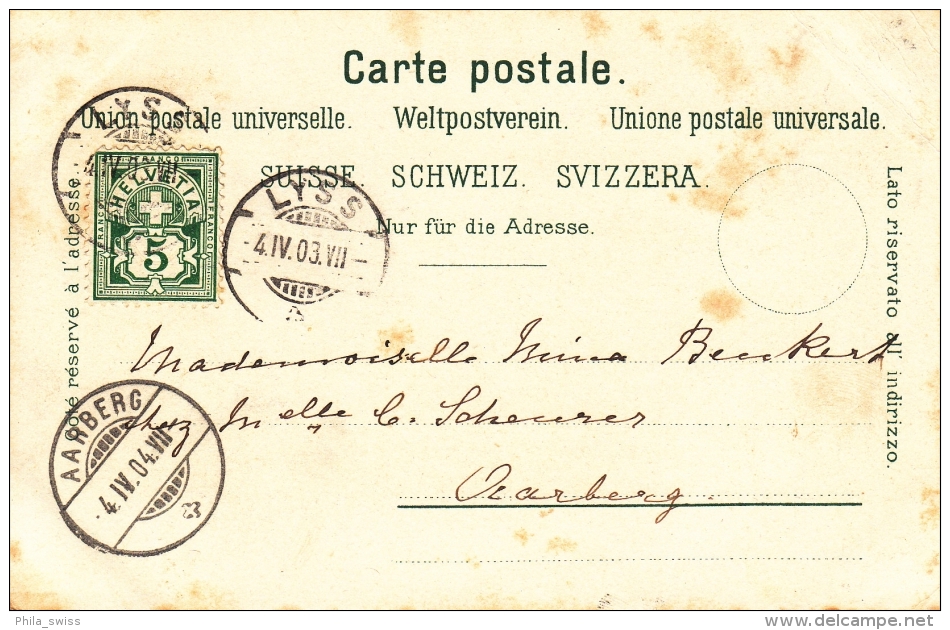 Carte postale.
Union postale universelle. Weltpostverein. Unione postale universale.
SUISSE. SCHWEIZ. SVIZZERA.
Nur für die Adresse.
Côté réservé à l'adresse.
Lato riservato all' indirizzo.
FRANCO
HELVETIA
FRANCO
FRANCO
5
LYSS
4.IV.03.VII
LYSS
-4.IV.03.VII-
Mademoiselle Nina Benkert
chez Melle C. Scheurer
Aarberg.
AARBERG
-4.IV.04.VII
Phila_swiss
delcampe.net